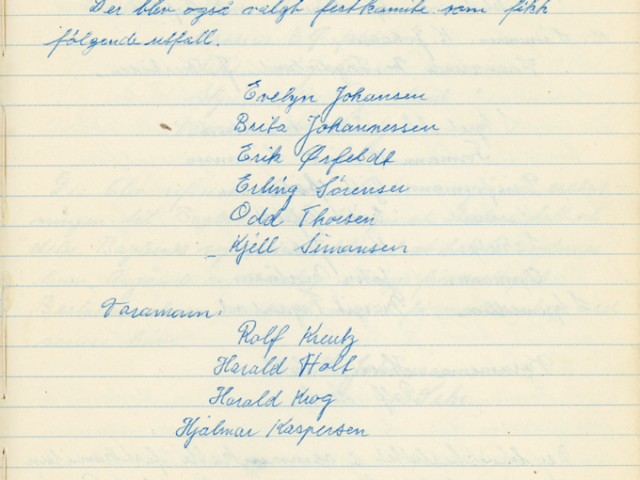 Der blev også valgt festkomite som fikk
følgende utfall.
Evelyn Johansen
Brita Johannessen
Erik Ørfeldt
Erling Sørensen
Odd Thoesen
Kjell Simonsen
Varamenn:
Rolf Kreutz
Harald Holt
Harald Krog
Hjalmar Kaspersen